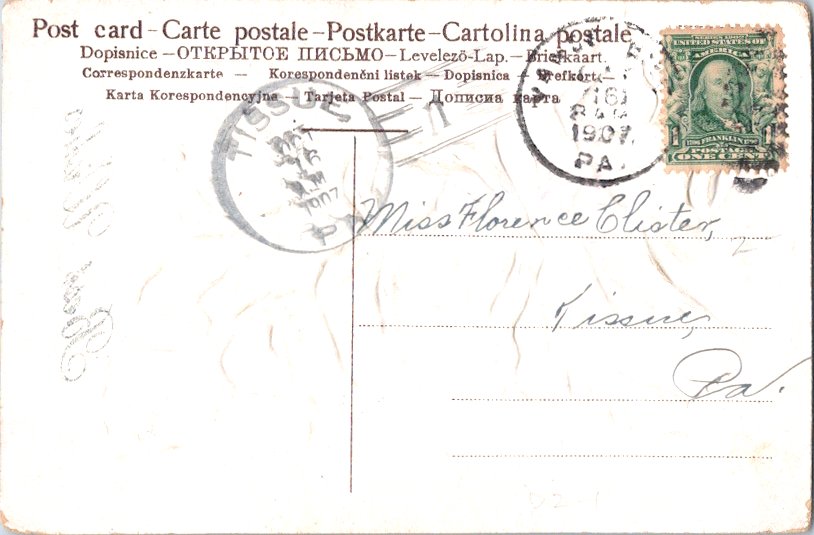 Post card – Carte postale – Postkarte – Cartolina postale
Dopisnice – ОТКРЫТОЕ ПИСЬМО – Levelező-Lap. – Briefkaart
Correspondenzkarte – Korespondenční listek – Dopisnica – Brefkort –
Karta Korespondencyjna – Tarjeta Postal – Дописна карта
TISSUE
OCT
16
AM
1907
PA
16
8 AM
1907
PA.
SERIES 1902
UNITED STATES OF
AMERICA
1 1790 FRANKLIN 1790 1
POSTAGE
ONE CENT
Miss Florence Clister,
Tissue,
Pa.
D2-1